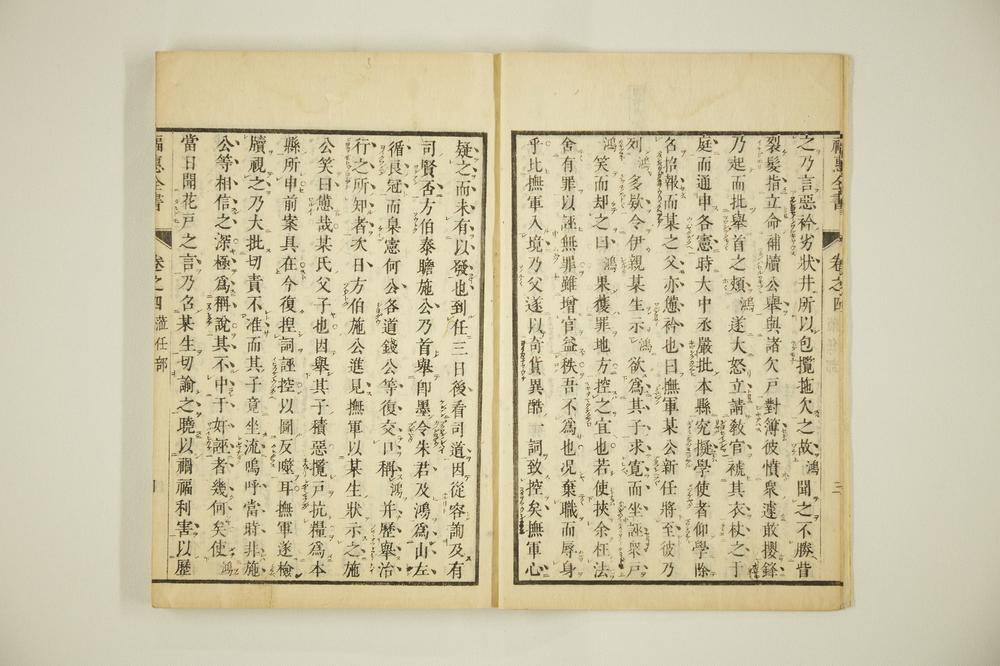 福惠全書 卷之四 三
之乃言惡衿劣狀井所以包攬拖欠之故鴻聞之不勝眥
裂髮指立命補牘公舉與諸欠戸對簿彼憤衆遽敢攖鋒
乃起而批舉首之頰鴻遂大怒立請敎官褫其衣杖之于
庭而通申各憲時大中丞嚴批本縣究擬學使者仰學除
名招報而某之父亦憊衿也曰撫軍某公新任將至彼乃
列鴻多欵令伊親某生示鴻欲爲其子求寛而坐誣槩戸
鴻笑而却之曰鴻果獲罪地方控之宜也若使挾余枉法
舍有罪以誣無罪雖增官益秩吾不爲也况棄職而辱身
乎比撫軍入境乃父遂以奇貨異酷詞致控矣撫軍心
疑之而未有以發也到任三日後看司道因從容詢及有
司賢否方伯泰瞻施公乃首舉卽墨令朱君及鴻爲山左
循良冠而臬憲何公各道錢公等復交口稱鴻并歷舉治
行之所知者次日方伯施公進見撫軍以某生狀示之施
公笑曰憊哉某氏父子也因舉其子積惡攬戸抗糧爲本
縣所申前案具在今復捏詞誣控以圖反噬耳撫軍遂檢
牘視之乃大批切責不准而其子竟坐流嗚呼當時非施
公等相信之深極爲稱說其不中于奸誣者幾何矣使鴻
當日開花戸之言乃名某生切諭之曉以禍福利害以歷
福惠全書 卷之四 蒞任部